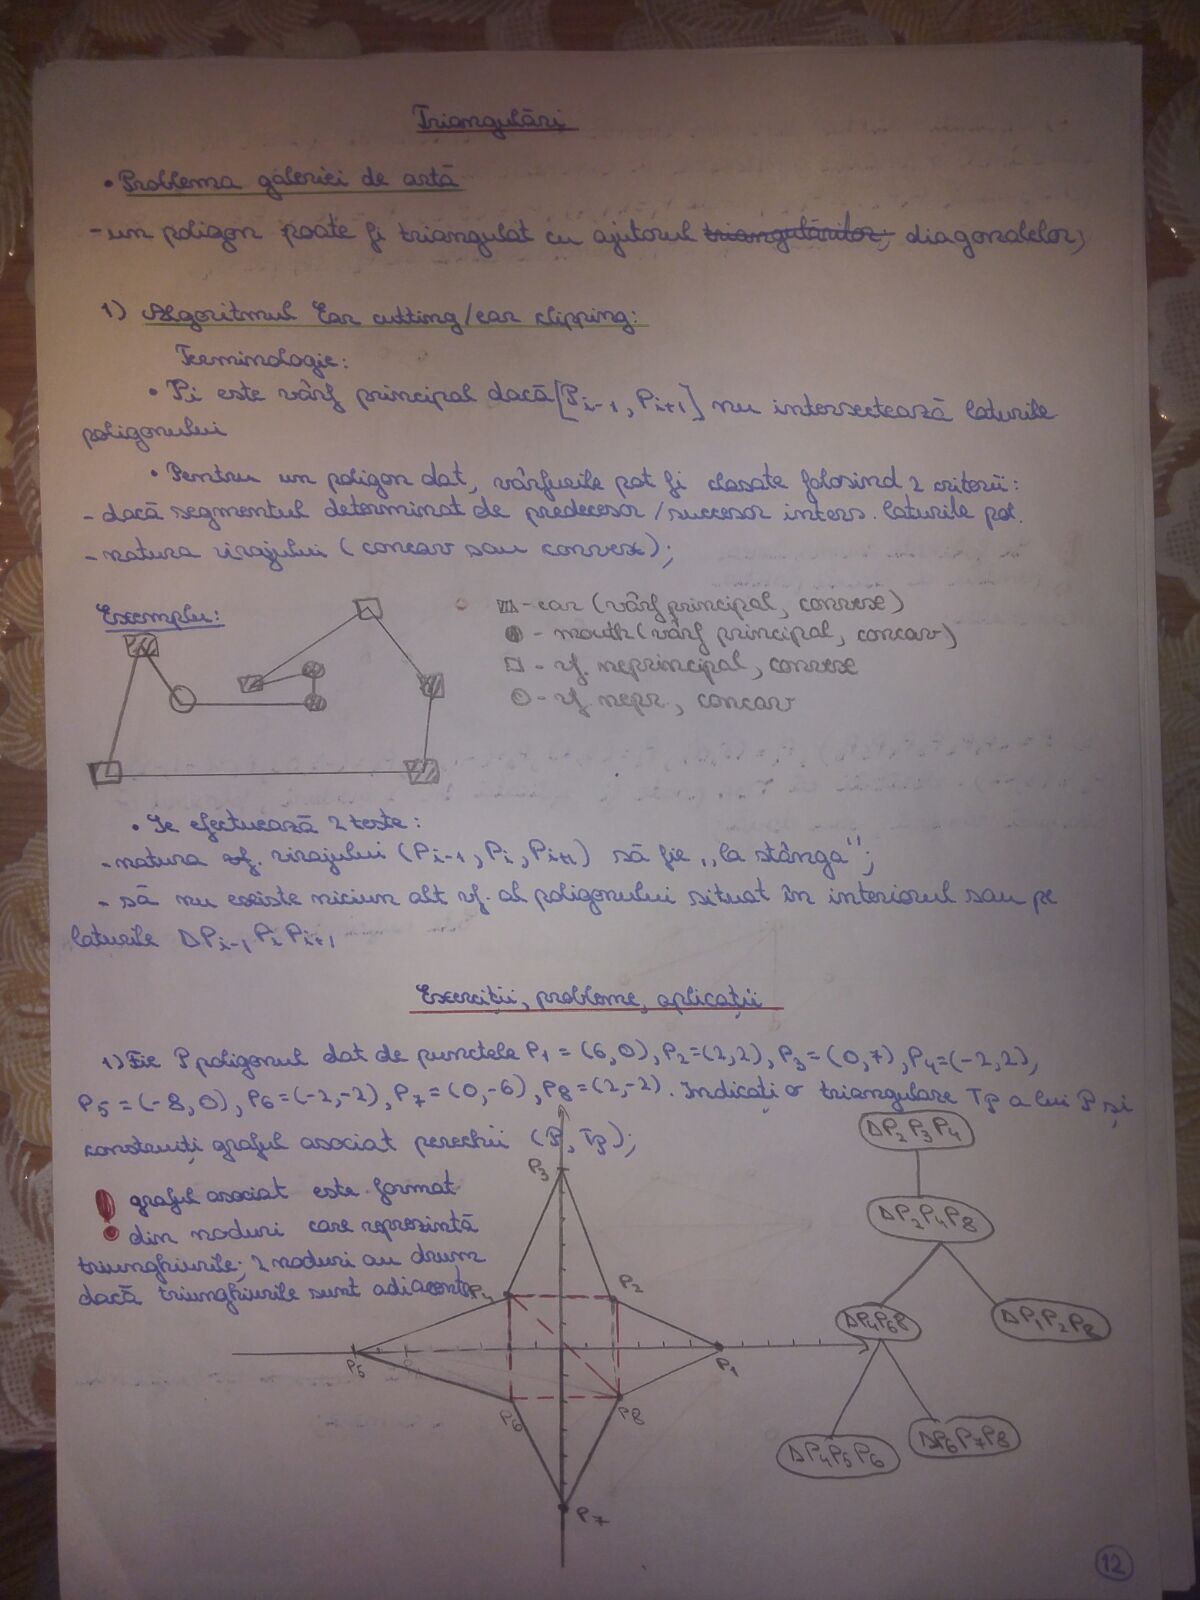 Triangulări
• Problema galeriei de artă
- un poligon poate fi triangulat cu ajutorul triangulărilor; diagonalelor;
1) Algoritmul Ear cutting/ear clipping:
Terminologie:
• Pi este vârf principal dacă [Pi-1, Pi+1] nu intersectează laturile
poligonului
• Pentru un poligon dat, vârfurile pot fi clasate folosind 2 criterii:
- dacă segmentul determinat de predecesor/succesor inters. laturile pol.
- natura virajului (concav sau convex);
Exemplu:
- ear (vârf principal, convex)
- mouth (vârf principal, concav)
- vf. neprincipal, convex
- vf. nepr, concav
• Se efectuează 2 teste:
- natura vf. virajului (Pi-1, Pi, Pi+1) să fie „la stânga";
- să nu existe niciun alt vf. al poligonului situat în interiorul sau pe
laturile ΔPi-1 Pi Pi+1
Exerciții, probleme, aplicații
1) Fie P poligonul dat de punctele P1 = (6,0), P2=(2,2), P3=(0,7), P4=(-2,2),
P5=(-8,0), P6=(-2,-2), P7=(0,-6), P8=(2,-2). Indicați o triangulare TP a lui P și
construiți graful asociat perechii (P, TP);
! graful asociat este format
din noduri care reprezintă
triunghiurile; 2 noduri au drum
dacă triunghiurile sunt adiacente
P3
P4
P2
P5
P1
P6
P8
P7
ΔP2P3P4
ΔP2P4P8
ΔP4P6P8
ΔP1P2P8
ΔP4P5P6
ΔP6P7P8
12